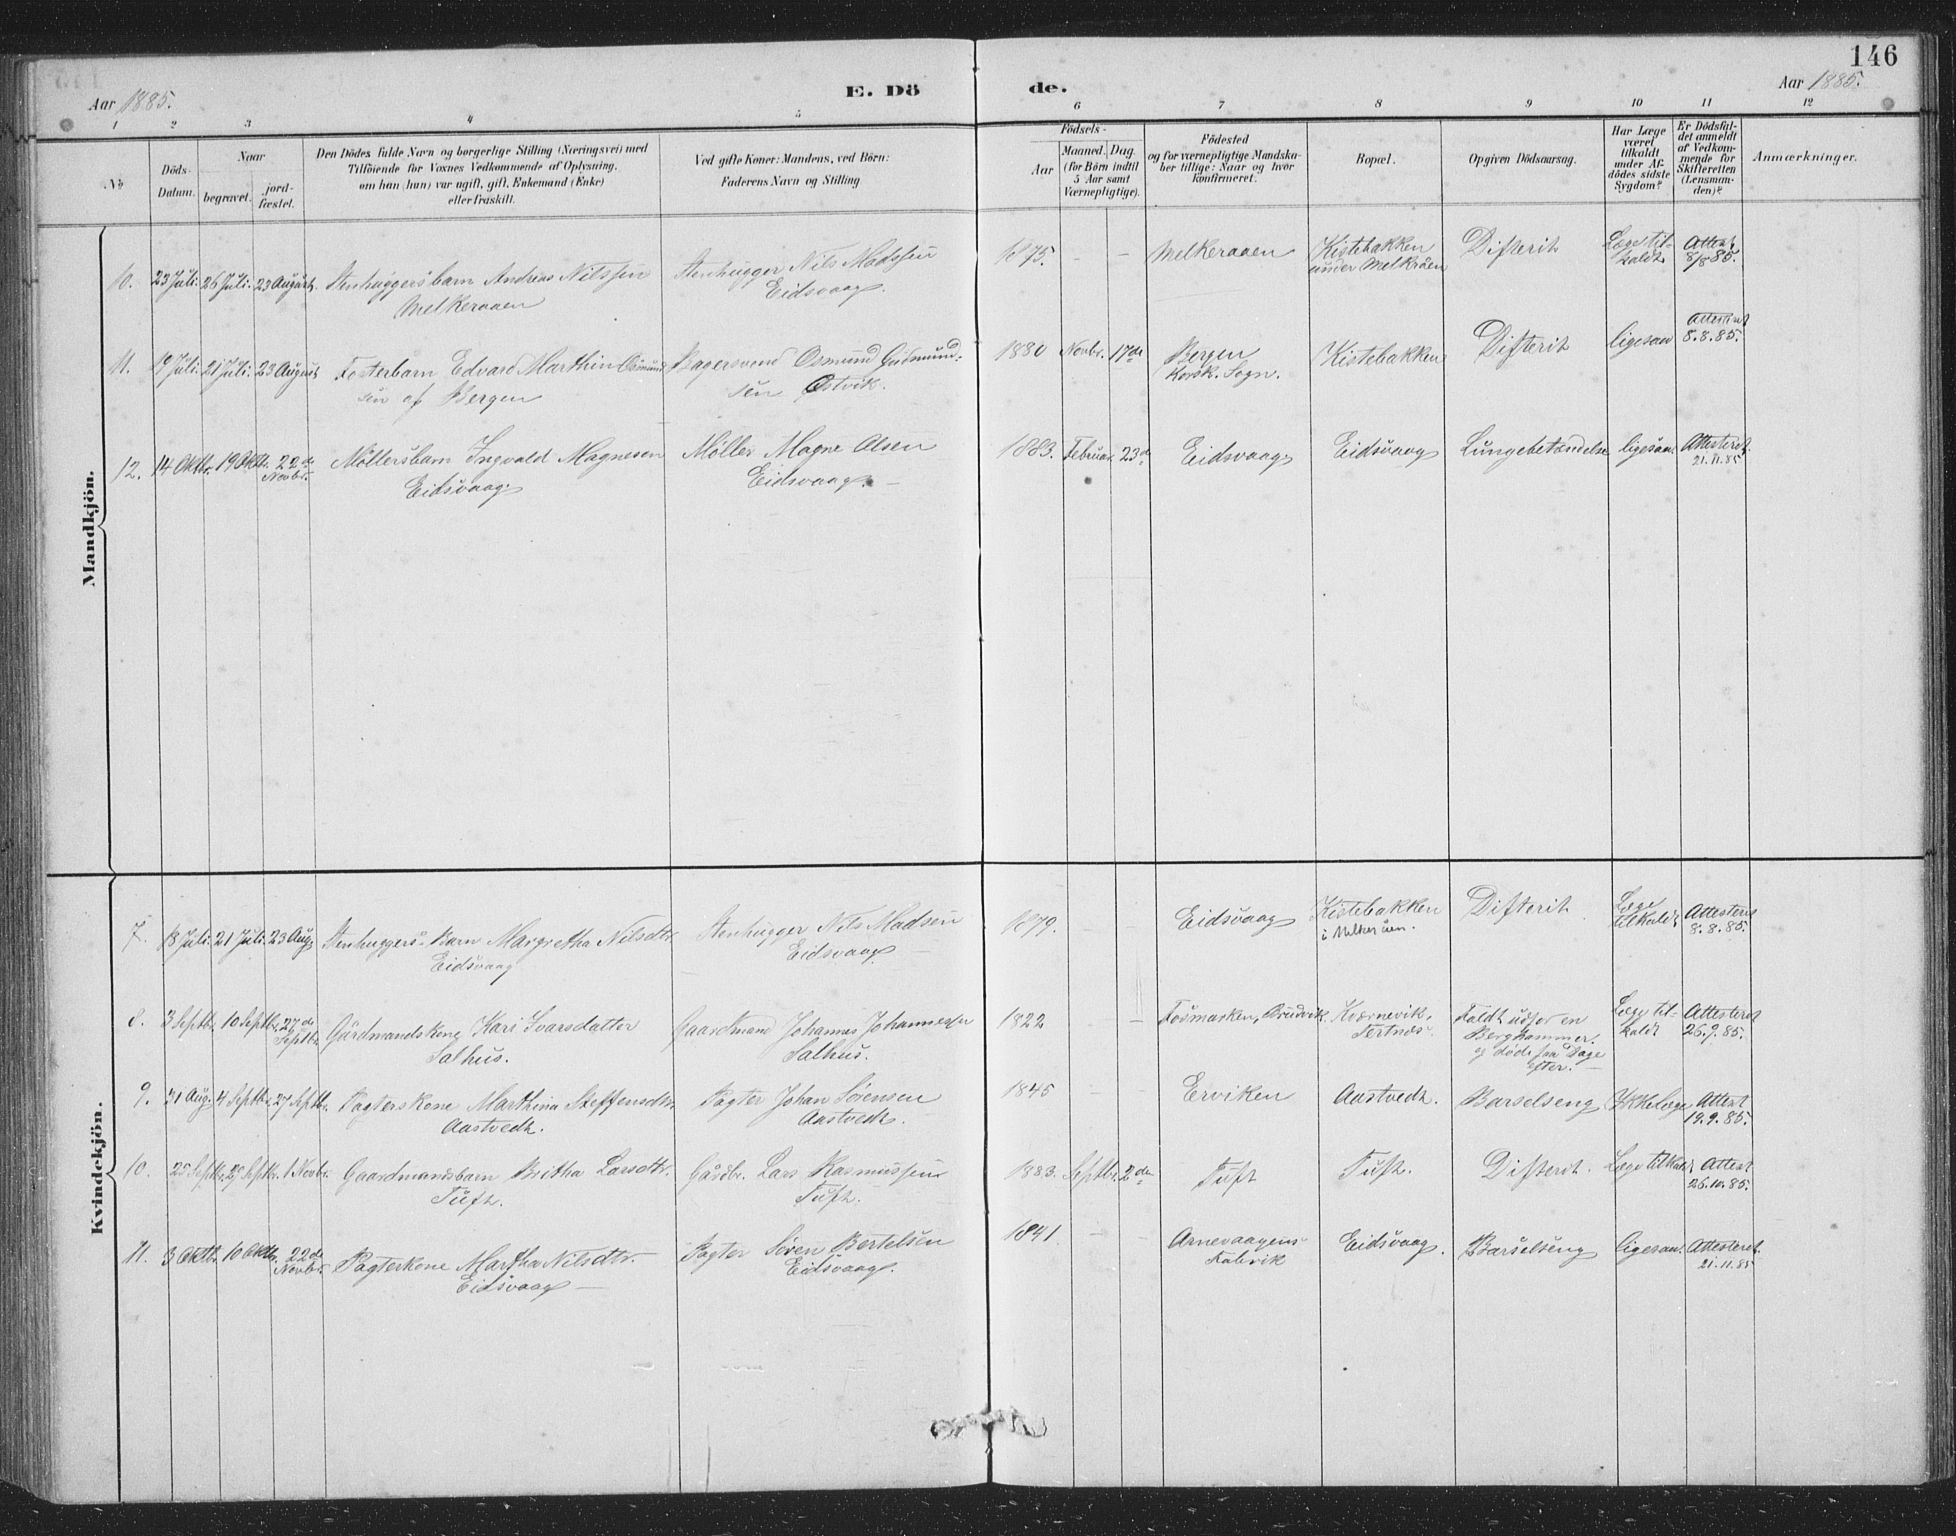 146
Aar 1885.
E. Dö
de.
Aar 1885.
1 2 3 4 5 6 7 8 9 10 11 12
No
Döds-
Datum.
Naar
begravet.
jord-
fæstet.
Den Dödes fulde Navn og borgerlige Stilling (Næringsvei) med
Tilföiende for Voxnes Vedkommende af Oplysning,
om han (hun) var ugift, gift, Enkemand (Enke)
eller fraskilt.
Ved gifte Koner: Mandens, ved Börn:
Faderens Navn og Stilling
Födsels-
Aar
Maaned.
Dag.
(for Börn indtil
5 Aar samt
Værnepligtige).
Födested
og for værnepligtige Mandska-
ber tillige: Naar og hvor
konfirmeret.
Bopæl.
Opgiven Dödsaarsag.
Har Læge
været
tilkaldt
under Af-
dödes sidste
Sygdom?
Er Dödsfal-
det anmeldt
af Vedkom-
mende for
Skifteretten
(Lensman-
den)?
Anmærkninger.
Mandkjön.
10. 23 Juli. 26 Juli. 23 August. Stenhuggersbarn Andreas Nilssen
Melkeraaen
Stenhugger Nils Madssen
Eidsvaag.
1875. - - Melkeraaen
Kistebakken
under Melkråen
Difterit
Læge til-
kaldt.
Attest
8/8 85.
11. 19 Juli. 21 Juli. 23 August Fosterbarn Edvard Marthin Osmund
sen af Bergen
Bagersvend Osmund Gudmund-
sen Østvik.
1880 Novbr. 17de
Bergen
Korsk. Sogn.
Kistebakken
Difterit
ligesaa
Attesteret
8.8.85.
12. 14 Oktbr. 19 Oktbr. 22de
Novbr.
Møllersbarn Ingvald Magnesen
Eidsvaag.
Møller Magne Olsen
Eidsvaag. -
1883. Februar. 23de
Eidsvaag
Eidsvaag
Lungebetændelse
ligesaa
Attesteret.
21.11.85
Kvindekjön.
7. 18 Juli. 21 Juli. 23 Aug. Stenhuggers-Barn Margretha Nilsdtr.
Eidsvaag
Stenhugger Nils Madsen
Eidsvaag. -
1879. - -
Eidsvaag
Kistebakken
i Melkeråen.
Difterit
Læge
tilkaldt
Attesteret
8.8.85.
8. 3 Septbr. 10 Septbr. 27de
Septbr.
Gårdmandskone Kari Ivarsdatter
Salhus.
Gaardmand Johannes Johannessen
Salhus.
1822 - -
Fosmarken, Bruvik.
Kværnevik,
Tertnæs
Faldt udfor en
Berghammer.
og døde faa Dage
efter. -
Læge til-
kaldt
Attesteret
26.9.85.
9. 31 Aug. 4 Septbr. 27 Septbr. Pagterskone Marthina Steffensdtr.
Aastvedt.
Pagter Johan Sørensen
Aastvedt.
1845 - -
Erviken
Aastvedt.
Barselseng
Ikke læge
Attest
19.9.85.
10. 25 Septbr. 29 Septbr. 1 Novbr. Gaardmandsbarn Britha Larsdtr.
Tuft.
Gårdbr. Lars Rasmussen
Tuft.
1883. Septbr. 2den
Tuft
Tuft.
Difterit.
Læge tilkaldt
Attest
26.10.85.
11. 3 Oktbr. 10 Oktbr. 22de
Novbr.
Pagterkone Martha Nilsdtr.
Eidsvaag -
Pagter Søren Bertelsen
Eidsvaag.
1841 - -
Arnevaagens
Eidsvaag.
Barselseng
ligesaa.
Attesteret.
21.11.85